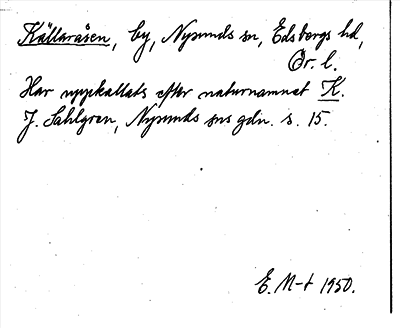 Källaråsen, by, Nysunds sn, Edsbergs hd,
Ör. l.
Har uppkallats efter naturnamnet K.
J. Sahlgren, Nysunds sns gdn. s. 15.
E. M-t 1950.